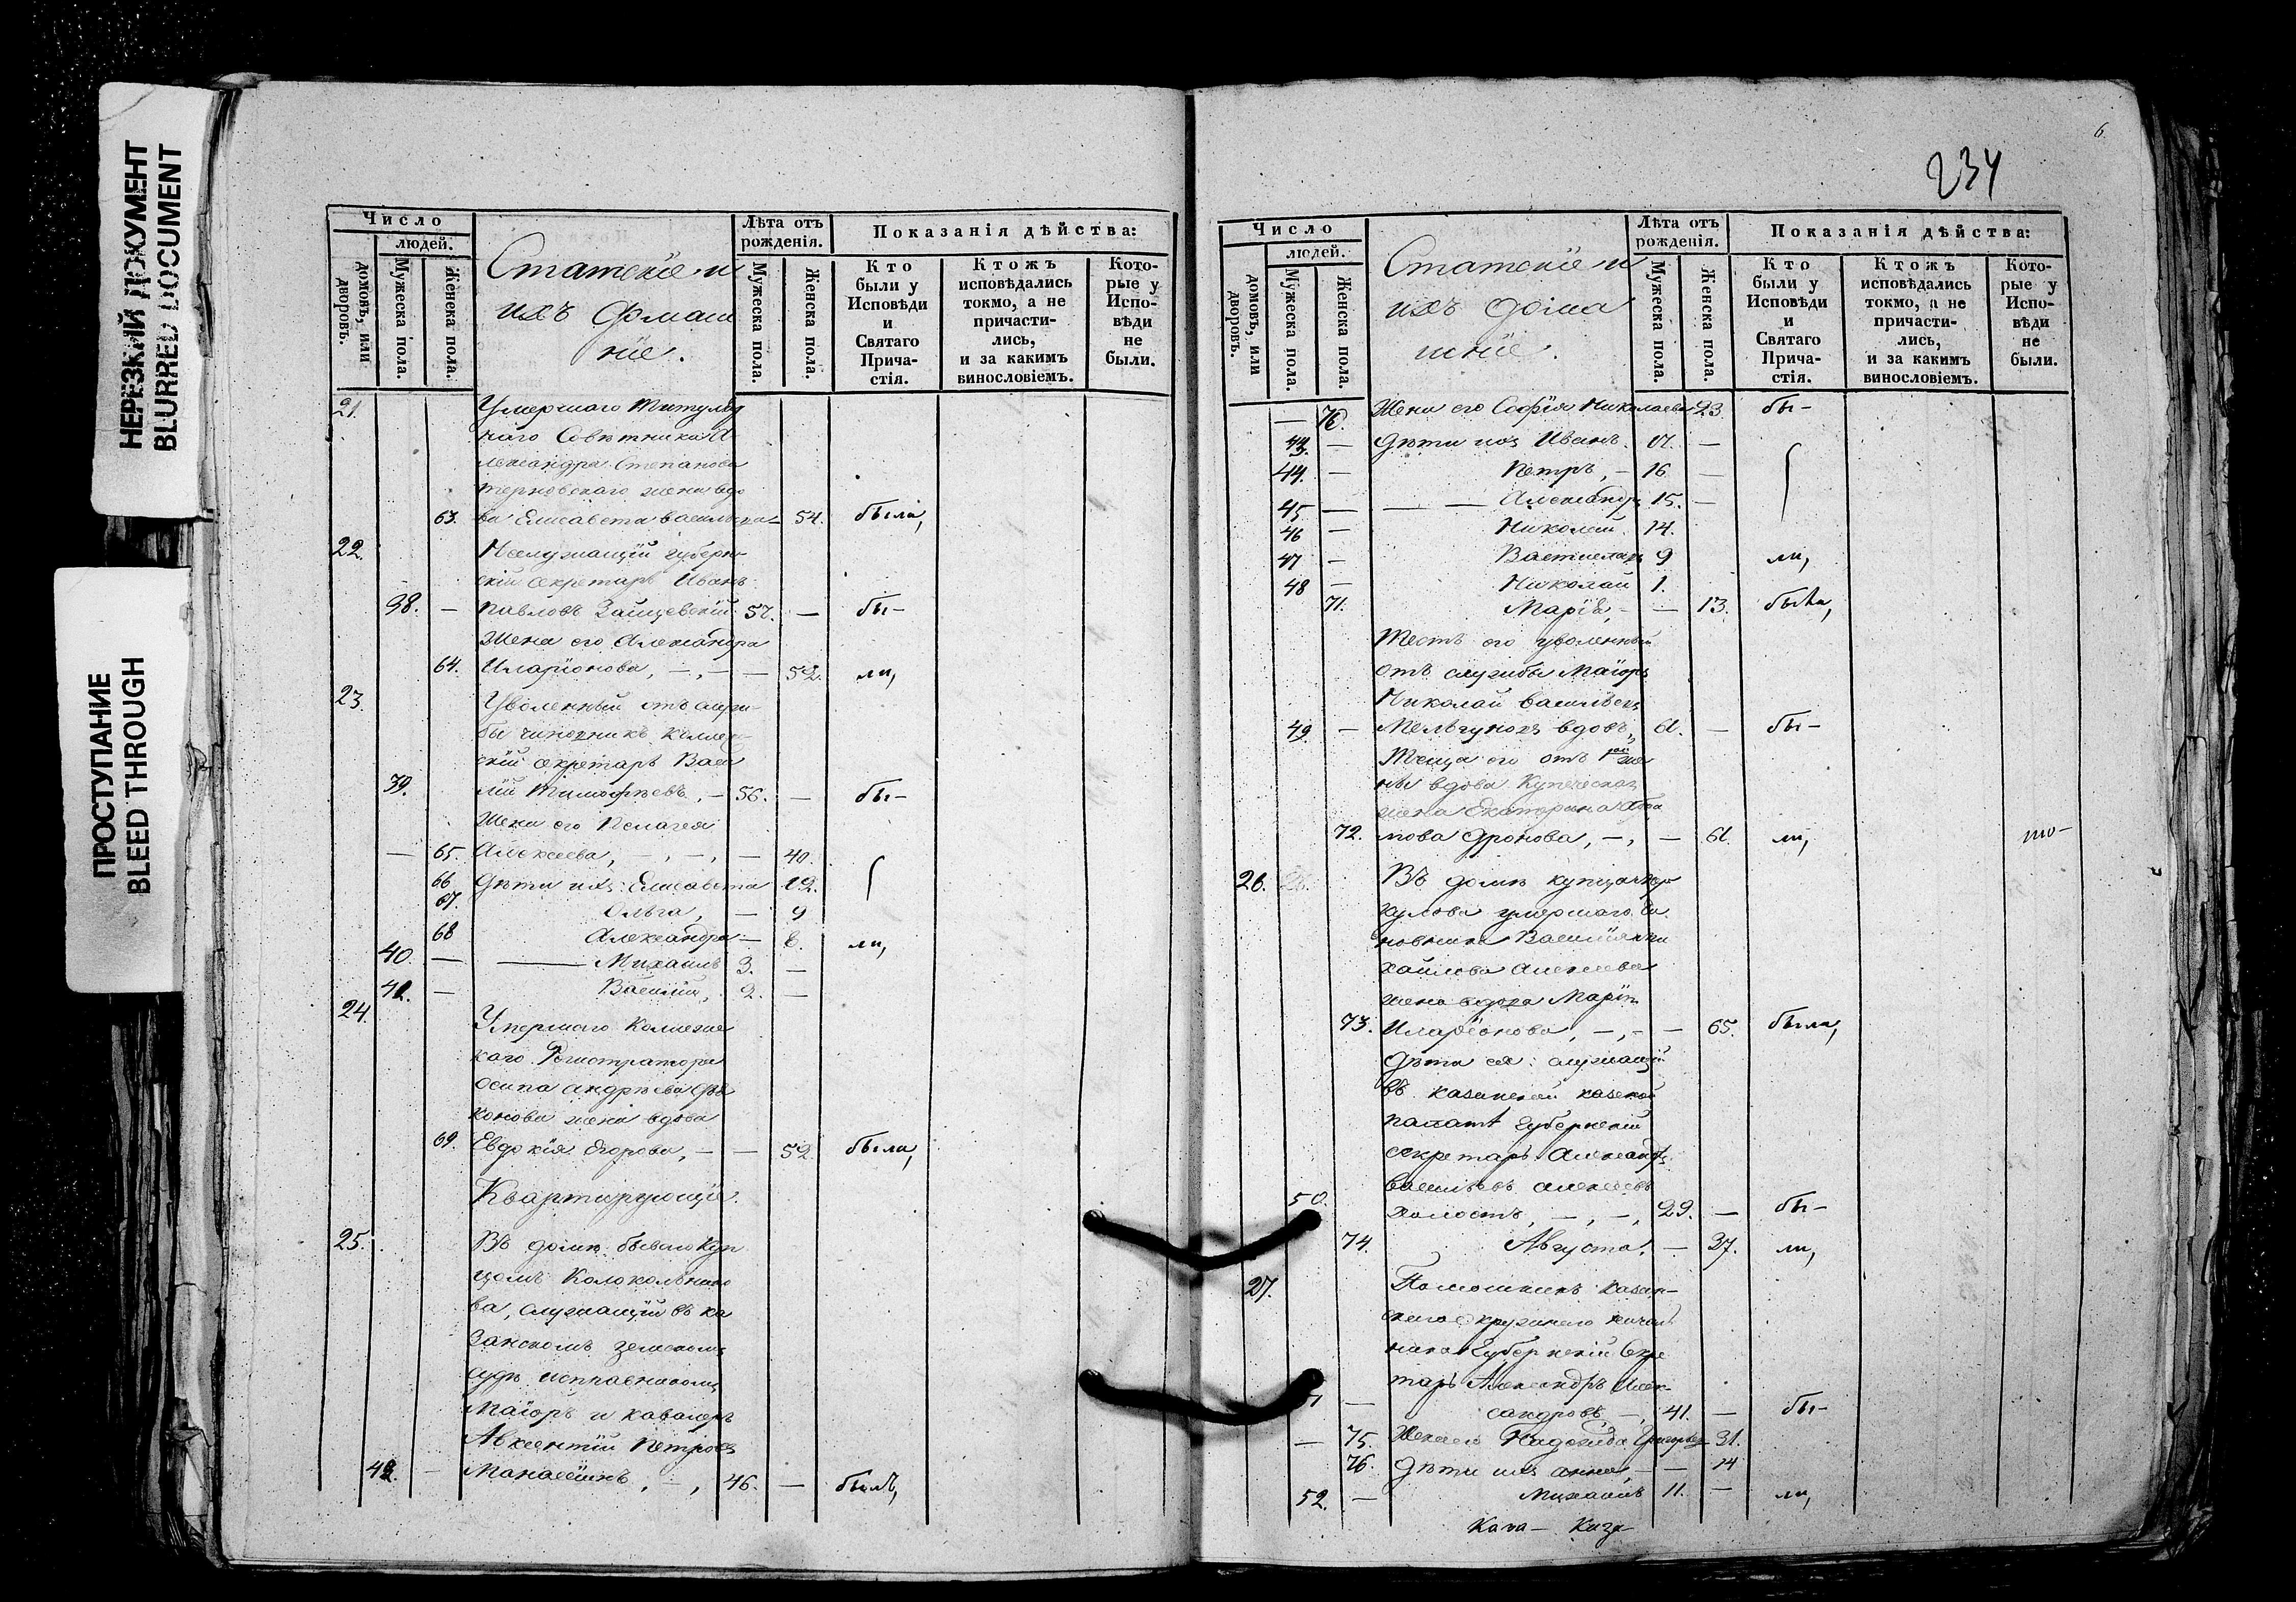 НЕРЕЗКИЙ ДОКУМЕНТ
BLURRED DOCUMENT
ПРОСТУПАНИЕ
BLEED THROUGH
Число
людей.
домовъ, или дворовъ.
Мужеска пола.
Женска пола.
Статскіе и
ихъ домаш
ніе.
Лѣта отъ рожденія.
Мужеска пола.
Женска пола.
Показанія дѣйства:
Кто были у Исповѣди и Святаго Прича- стія.
Ктожъ исповѣдались токмо, а не причасти- лись, и за какимъ винословіемъ.
Кото- рые у Испо- вѣди не были.
21. Умершаго Титуляр
наго Совѣтника А
лександра Степанова
жена вдо
63. ва Елисавета Васильева 54. была,
22. Неслужащій губерн-
скій секретарь Иванъ
38. — Павловъ Зайцевскій 57. — бы-
Жена его Александра
64. Иларіонова, — , — — 52. ли,
23. Уволенный отъ служ-
бы чиновникъ Коллеж-
скій секретарь Васи
39. лій Тимофѣевъ, — 56. — бы-
Жена его Пелагея
— 65. Алексеева, — , — , — 40.
66 Дѣти ихъ: Елисавета 12.
67. Ольга, — 9
68 Александра — 6. ли,
40. — Михаилъ 3. —
41. — Василій, 2. —
24. Умершаго Коллежс
каго Регистратора
Осипа Андрѣева Дья
конова жена вдова
69. Евдокія Егорова, — — 52. была,
Квартирующіе.
25. Въ домѣ бывшемъ Куп
Колокольнико
ва, служащій въ Ка
занскомъ земскомъ
судѣ исправникомъ
Маіоръ и кавалеръ
Авксентій Петровъ
42. — Манассеинъ, — , 46. — былъ,
6.
234
Число
людей.
домовъ, или дворовъ.
Мужеска пола.
Женска пола.
Статскіе и
ихъ дома
шніе.
Лѣта отъ рожденія.
Мужеска пола.
Женска пола.
Показанія дѣйства:
Кто были у Исповѣди и Святаго Прича- стія.
Ктожъ исповѣдались токмо, а не причасти- лись, и за какимъ винословіемъ.
Кото- рые у Испо- вѣди не были.
— 70. Жена его Софія Николаева 23. бы-
43. — Дѣти ихъ Иванъ 17. —
44. — Петръ, — 16 —
45 — — Александръ 15. —
46 — Николай 14.
47 — 9 ли,
48 — Николай 1.
71. Марія, — — 13. была,
Тесть его уволенный
отъ службы Маіоръ
Николай Васильевъ
49. — Мельгуновъ вдовъ, 61. — бы-
Теща его отъ 1-ой же
ны вдова Купеческая
жена Екатерина
72. пова Дронова, — , — 61. ли,
26. Въ домѣ купца
умершаго чи
новника Василія Ми
хайлова Алексеева
жена вдова Марія
73. Иларіонова, — , — — 65. была,
Дѣти ея: служащій
въ казанской казеной
палатѣ Губернскій
секретарь Александръ
Васильевъ Алексеевъ
50. холостъ, — , — , 29. — бы-
74. Августа, — 37. ли,
27. Помошникъ Казан-
скаго окружнаго началь
ника Губернскій Секре
тарь Александръ Алек-
51 — сандровъ, — , 41. — бы-
— 75. Жена его Надежда Григорьева 31.
76. Дѣти ихъ Анна, — — 14
52. — Михаилъ 11. — ли,